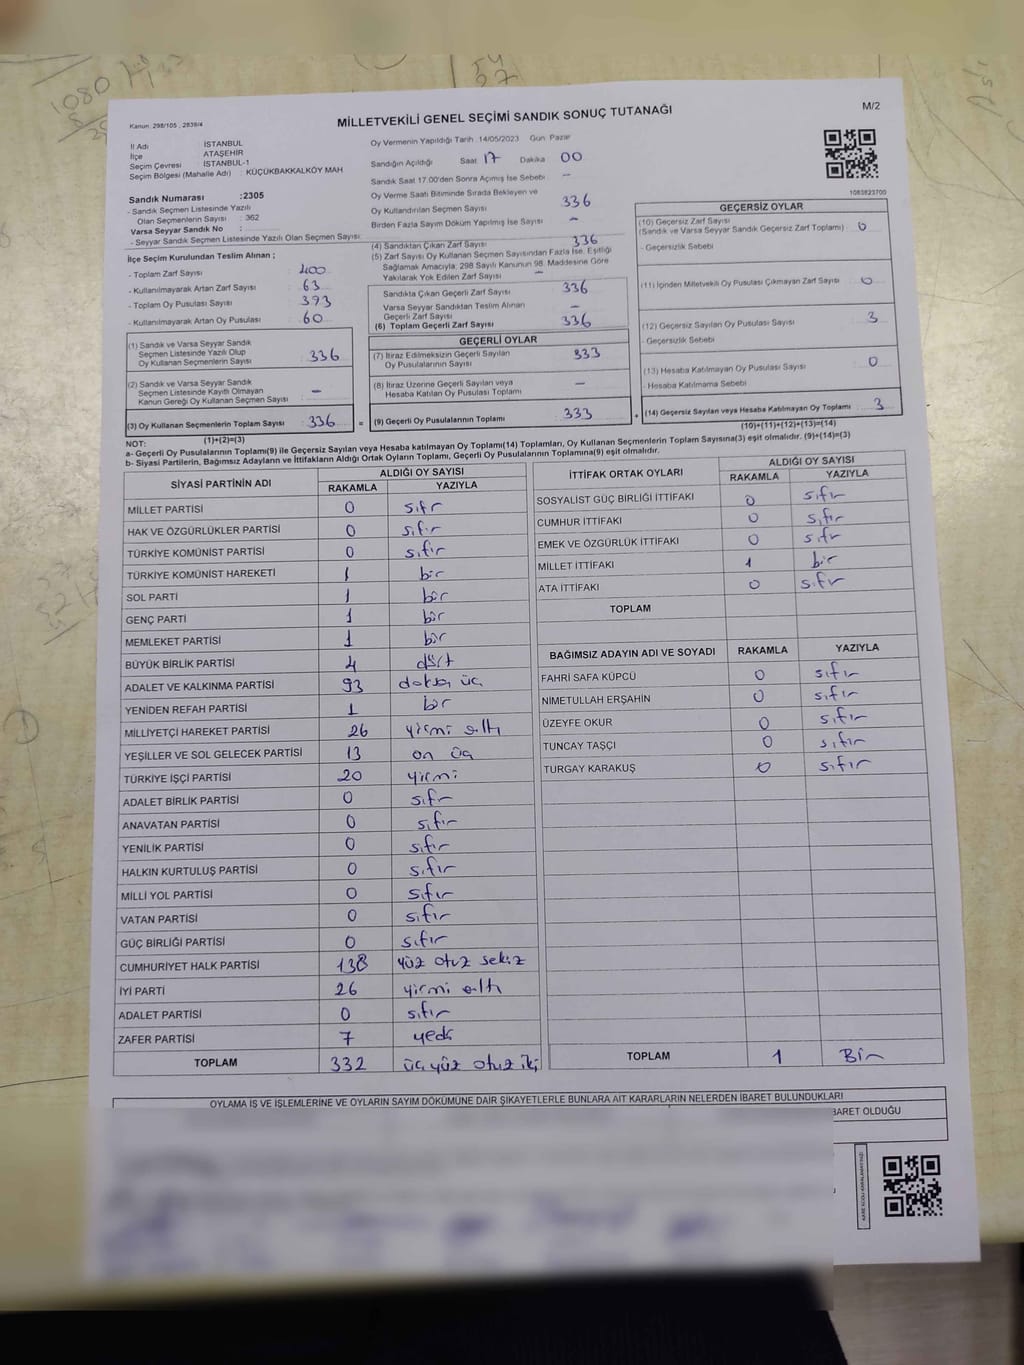 Kanun: 298/105 , 2839/4
MİLLETVEKİLİ GENEL SEÇİMİ SANDIK SONUÇ TUTANAĞI
M/2
İl Adı : İSTANBUL
İlçe : ATAŞEHİR
Seçim Çevresi : İSTANBUL-1
Seçim Bölgesi (Mahalle Adı) : KÜÇÜKBAKKALKÖY MAH
Sandık Numarası :2305
- Sandık Seçmen Listesinde Yazılı
Olan Seçmenlerin Sayısı : 362
Varsa Seyyar Sandık No :
- Seyyar Sandık Seçmen Listesinde Yazılı Olan Seçmen Sayısı:
İlçe Seçim Kurulundan Teslim Alınan ;
- Toplam Zarf Sayısı : 400
- Kullanılmayarak Artan Zarf Sayısı : 63
- Toplam Oy Pusulası Sayısı : 393
- Kullanılmayarak Artan Oy Pusulası : 60
(1) Sandık ve Varsa Seyyar Sandık
Seçmen Listesinde Yazılı Olup
Oy Kullanan Seçmenlerin Sayısı : 336
(2) Sandık ve Varsa Seyyar Sandık
Seçmen Listesinde Kayıtlı Olmayan
Kanun Gereği Oy Kullanan Seçmen Sayısı : -
(3) Oy Kullanan Seçmenlerin Toplam Sayısı : 336
(1)+(2)=(3)
Oy Vermenin Yapıldığı Tarih :14/05/2023 Gün: Pazar
Sandığın Açıldığı Saat 17 Dakika 00
Sandık Saat 17.00'den Sonra Açımış İse Sebebi : -
Oy Verme Saati Bitiminde Sırada Bekleyen ve
Oy Kullandırılan Seçmen Sayısı : 336
Birden Fazla Sayım Döküm Yapılmış İse Sayısı : -
(4) Sandıktan Çıkan Zarf Sayısı : 336
(5) Zarf Sayısı Oy Kullanan Seçmen Sayısından Fazla İse, Eşitliği
Sağlamak Amacıyla; 298 Sayılı Kanunun 98. Maddesine Göre
Yakılarak Yok Edilen Zarf Sayısı : -
Sandıkta Çıkan Geçerli Zarf Sayısı : 336
Varsa Seyyar Sandıktan Teslim Alınan
Geçerli Zarf Sayısı : -
(6) Toplam Geçerli Zarf Sayısı : 336
GEÇERLİ OYLAR
(7) İtiraz Edilmeksizin Geçerli Sayılan
Oy Pusulalarının Sayısı : 333
(8) İtiraz Üzerine Geçerli Sayılan veya
Hesaba Katılan Oy Pusulası Toplamı : -
(9) Geçerli Oy Pusulalarının Toplamı : 333
1083823700
GEÇERSİZ OYLAR
(10) Geçersiz Zarf Sayısı
(Sandık ve Varsa Seyyar Sandık Geçersiz Zarf Toplamı) : 0
- Geçersizlik Sebebi
(11) İçinden Milletvekili Oy Pusulası Çıkmayan Zarf Sayısı : 0
(12) Geçersiz Sayılan Oy Pusulası Sayısı : 3
- Geçersizlik Sebebi
(13) Hesaba Katılmayan Oy Pusulası Sayısı : 0
- Hesaba Katılmama Sebebi
(14) Geçersiz Sayılan veya Hesaba Katılmayan Oy Toplamı : 3
(10)+(11)+(12)+(13)=(14)
NOT:
a- Geçerli Oy Pusulalarının Toplamı(9) ile Geçersiz Sayılan veya Hesaba katılmayan Oy Toplamı(14) Toplamları, Oy Kullanan Seçmenlerin Toplam Sayısına(3) eşit olmalıdır. (9)+(14)=(3)
b- Siyasi Partilerin, Bağımsız Adayların ve İttifakların Aldığı Ortak Oyların Toplamı, Geçerli Oy Pusulalarının Toplamına(9) eşit olmalıdır.
SİYASİ PARTİNİN ADI
ALDIĞI OY SAYISI
RAKAMLA YAZIYLA
MİLLET PARTİSİ 0 sıfır
HAK VE ÖZGÜRLÜKLER PARTİSİ 0 sıfır
TÜRKİYE KOMÜNİST PARTİSİ 0 sıfır
TÜRKİYE KOMÜNİST HAREKETİ 1 bir
SOL PARTİ 1 bir
GENÇ PARTİ 1 bir
MEMLEKET PARTİSİ 1 bir
BÜYÜK BİRLİK PARTİSİ 4 dört
ADALET VE KALKINMA PARTİSİ 93 doksa üç
YENİDEN REFAH PARTİSİ 1 bir
MİLLİYETÇİ HAREKET PARTİSİ 26 yirmi altı
YEŞİLLER VE SOL GELECEK PARTİSİ 13 on üç
TÜRKİYE İŞÇİ PARTİSİ 20 yirmi
ADALET BİRLİK PARTİSİ 0 sıfır
ANAVATAN PARTİSİ 0 sıfır
YENİLİK PARTİSİ 0 sıfır
HALKIN KURTULUŞ PARTİSİ 0 sıfır
MİLLİ YOL PARTİSİ 0 sıfır
VATAN PARTİSİ 0 sıfır
GÜÇ BİRLİĞİ PARTİSİ 0 sıfır
CUMHURİYET HALK PARTİSİ 138 yüz otuz sekiz
İYİ PARTİ 26 yirmi altı
ADALET PARTİSİ 0 sıfır
ZAFER PARTİSİ 7 yedi
TOPLAM 332 üçyüz otuz iki
İTTİFAK ORTAK OYLARI
ALDIĞI OY SAYISI
RAKAMLA YAZIYLA
SOSYALİST GÜÇ BİRLİĞİ İTTİFAKI 0 sıfır
CUMHUR İTTİFAKI 0 sıfır
EMEK VE ÖZGÜRLÜK İTTİFAKI 0 sıfır
MİLLET İTTİFAKI 1 bir
ATA İTTİFAKI 0 sıfır
TOPLAM
BAĞIMSIZ ADAYIN ADI VE SOYADI RAKAMLA YAZIYLA
FAHRİ SAFA KÜPCÜ 0 sıfır
NİMETULLAH ERŞAHİN 0 sıfır
ÜZEYFE OKUR 0 sıfır
TUNCAY TAŞÇI 0 sıfır
TURGAY KARAKUŞ 0 sıfır
TOPLAM 1 Bir
OYLAMA İŞ VE İŞLEMLERİNE VE OYLARIN SAYIM DÖKÜMÜNE DAİR ŞİKAYETLERLE BUNLARA AİT KARARLARIN NELERDEN İBARET BULUNDUKLARI
BARET OLDUĞU